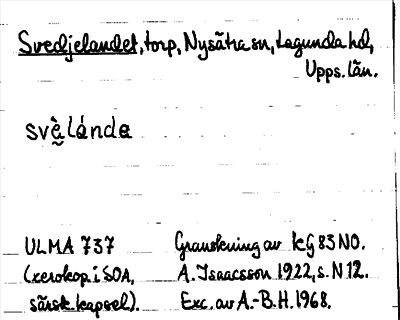 Svedjelandet, torp, Nysätra sn, Lagunda hd,
Upps. län.
svὲ̰lánde
ULMA 737 Granskning av kG 83 NO.
(xerokop. i SOA, A. Isaacsson 1922, s. N 12.
särsk. kapsel). Exc. av A.-B. H. 1968.